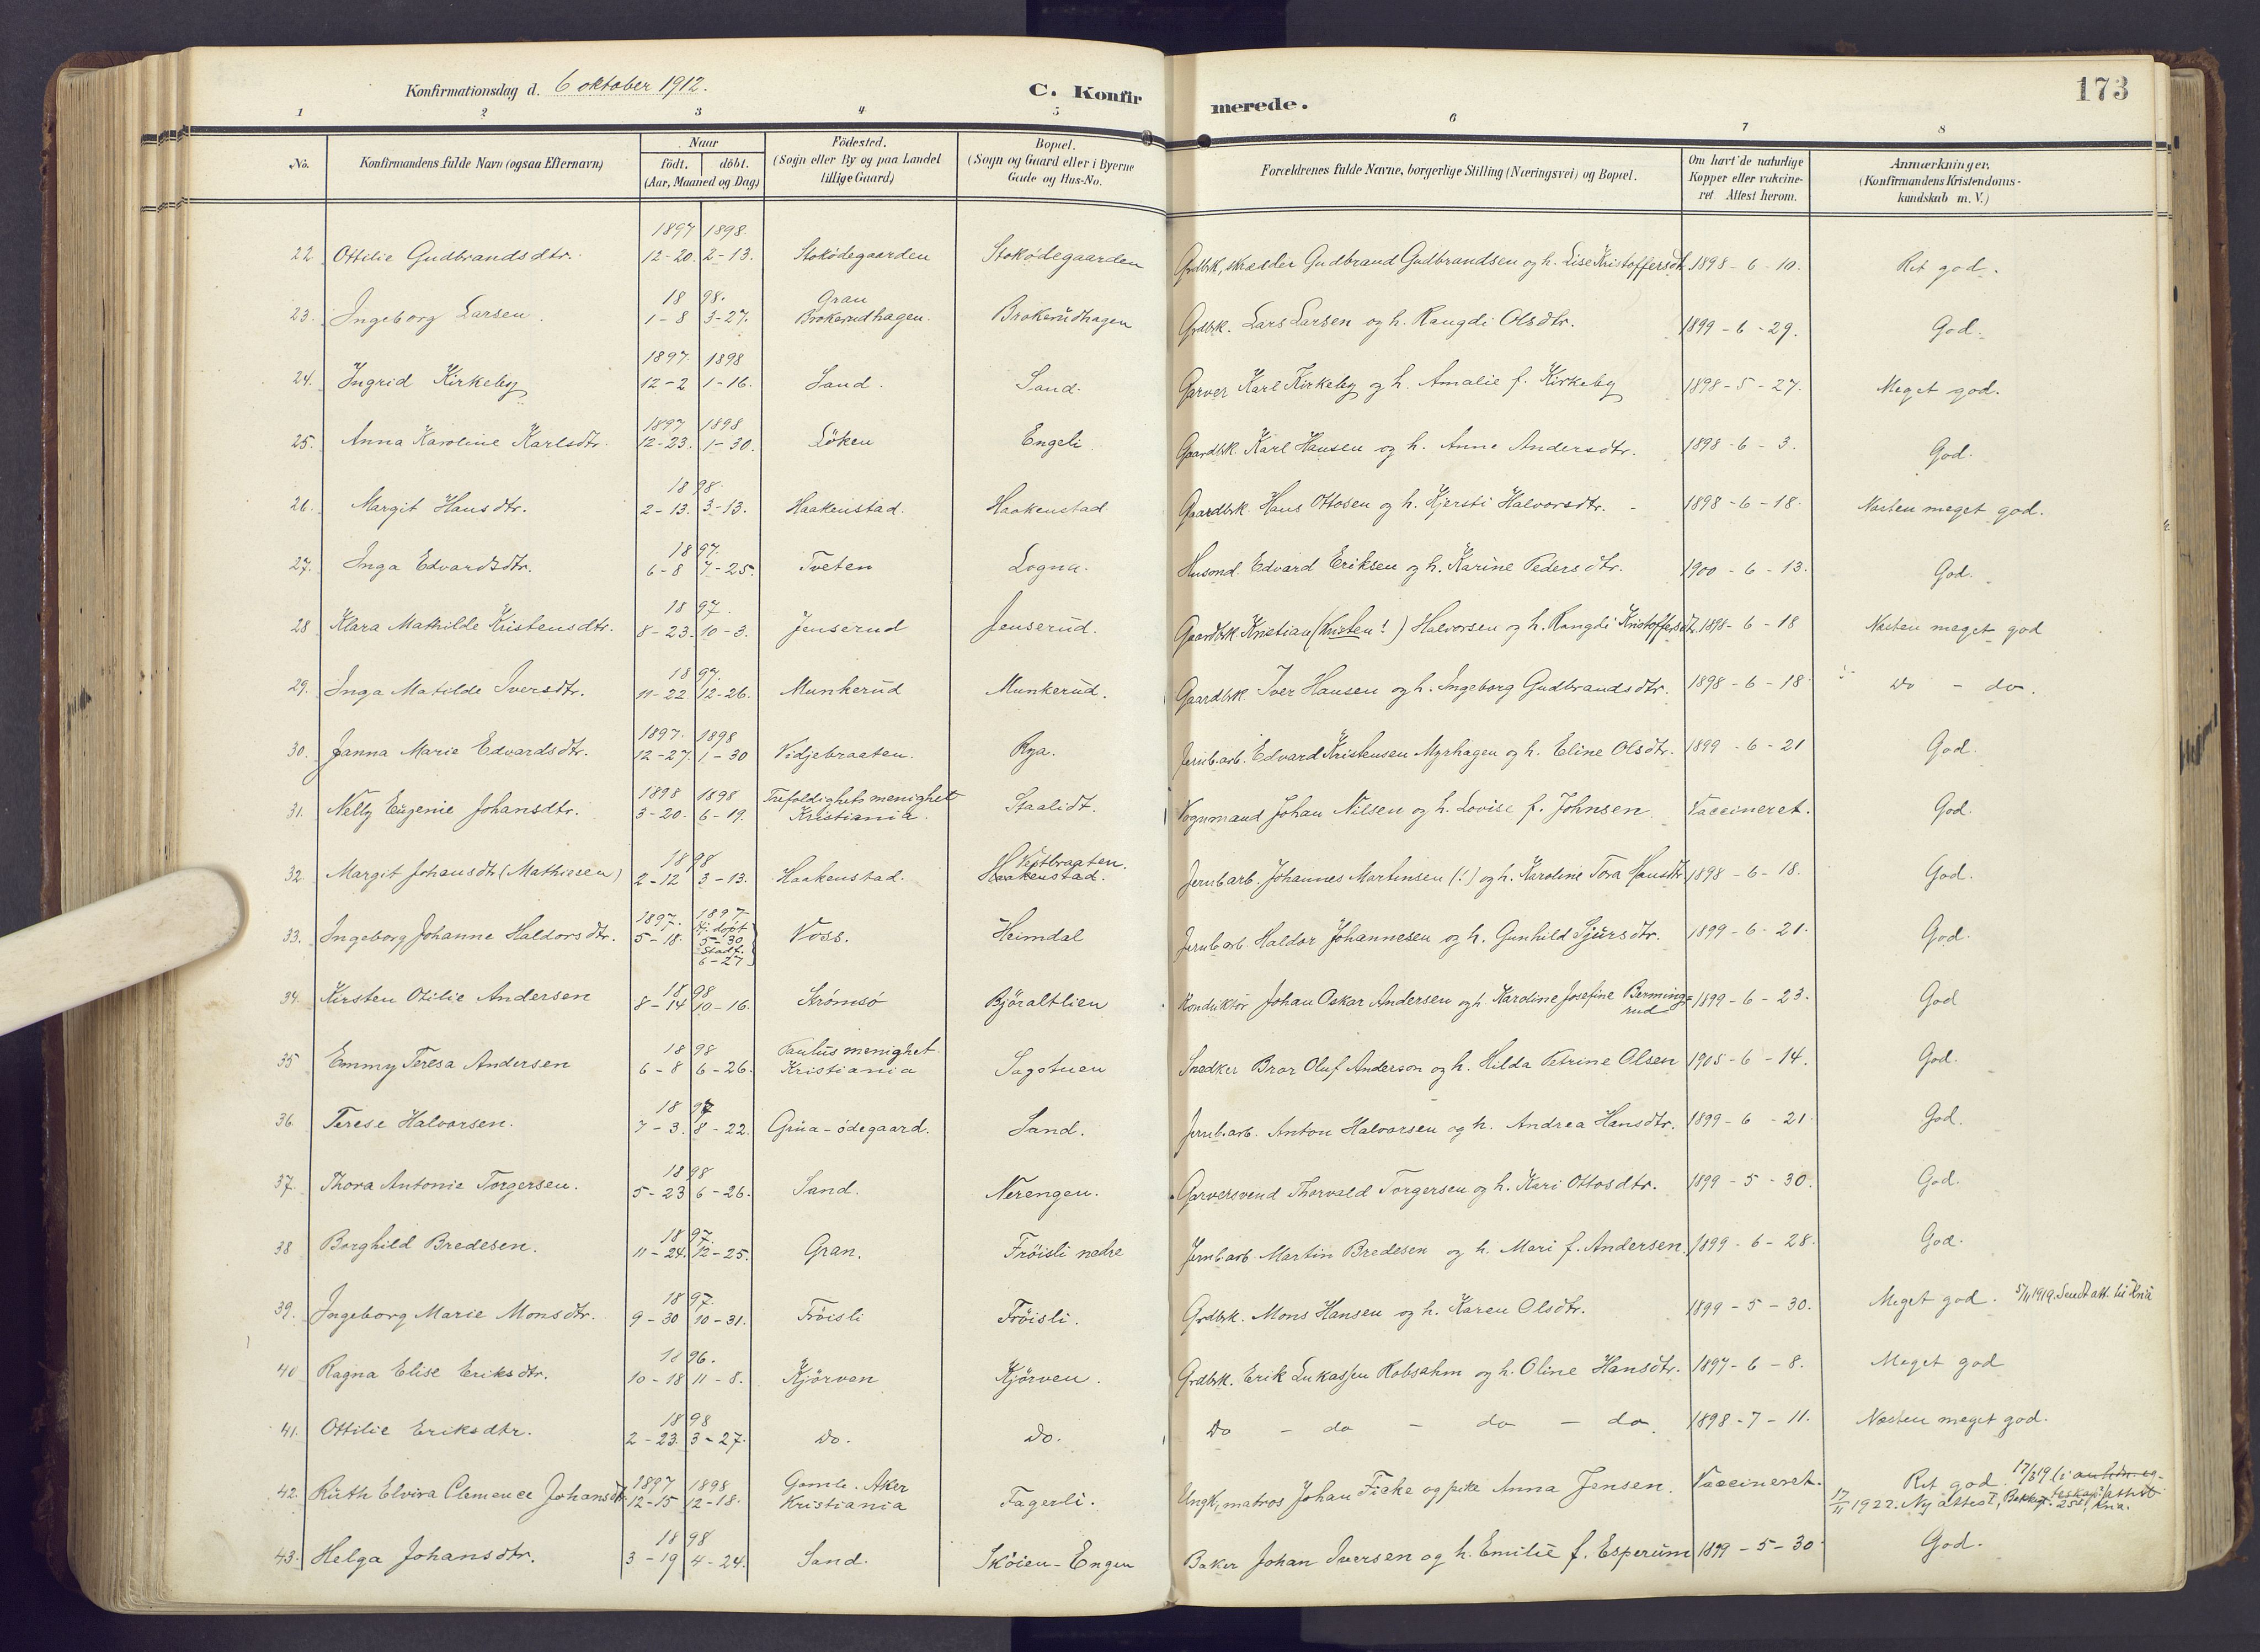 Konfirmationsdag d. 6 oktober 1912.
C. Konfirmerede.
173
1 2 3 4 5 6 7 8
No. Konfirmandens fulde Navn (ogsaa Efternavn) Naar født. døbt. (Aar, Maaned og Dag) Fødested. (Sogn eller By og paa Landet tillige Gaard) Bopæl. (Sogn og Gaard eller i Byerne Gade og Hus-No. Forældrenes fulde Navne, borgerlige Stilling (Næringsvei) og Bopæl. Om havt de naturlige Kopper eller vakcineret. Attest herom. Anmærkninger. (Konfirmandens Kristendomskundskab m. V.)
22. Ottilie Gudbrandsdtr. 1897 12-20. 1898. 2-13. Stoködegaarden Stoködegaarden Grdbrk, skrædder Gudbrand Gudbrandsen og h. Lise Kristoffersdtr. 1898-6-10. Ret god.
23. Ingeborg Larsen. 1898. 1-8 3-27. Gran Brokerudhagen. Brokerudhagen Grdbrk. Lars Larsen og h. Rangdi Olsdtr. 1899-6-29. God.
24. Ingrid Kirkeby 1897. 12-2 1898 1-16. Sand. Sand. Garver Karl Kirkeby og h. Amalie f. Kirkeby 1898-5-27. Meget god.
25. Anna Karoline Karlsdtr. 1897 12-23. 1898 1-30. Löken Engeli Gaardbrk. Karl Hansen og h. Anne Andersdtr. 1898-6-3. God.
26. Margit Hansdtr. 1898. 2-13. 3-13. Haakenstad. Haakenstad Gaardbrk. Hans Ottosen og h. Kjersti Halvorsdtr. 1898-6-18. Næsten meget god.
27. Inga Edvardsdtr. 1897. 6-8 7-25. Tveten Logna. Husmd. Edvard Eriksen og h. Karine Pedersdtr. 1900-6-13. God.
28 Klara Mathilde Kristensdtr. 1897. 8-23. 10-3. Jenserud Jenserud. Gaardbrk Kristian (Kristen!) Halvorsen og h. Rangdi Kristoffersdtr. 1898-6-18 Næsten meget god
29. Inga Matilde Iversdtr. 1897. 11-22 12-26. Munkerud Munkerud. Gaardbrk. Iver Hansen og h. Ingeborg Gudbrandsdtr. 1898-6-18 do - do.
30. Janna Marie Edvardsdtr. 1897. 12-27. 1898 1-30 Vidjebraaten. Rya. Jernb.arb. Edvard Kristensen Myrhagen og h. Eline Olsdtr. 1899-6-21 God.
31. Nelly Eugenie Johansdtr. 1898 3-20. 1898 6-19. Trefoldighets menighet Kristiania. Staalidt. Vognmand Johan Nilsen og h. Lovise f. Johnsen Vaccineret. God.
32. Margit Johansdtr (Mathiesen) 1898 2-12 3-13. Haakenstad. Vestbraaten. Haakenstad. Jernb.arb. Johannes Martinsen (!) og h. Karoline Tora Hansdtr. 1898-6-18. God.
33. Ingeborg Johanne Haldorsdtr. 1897. 5-18. 1897 Hj. døpt 5-30. Stadf. 6-27 Voss. Heimdal Jernb.arb Haldor Johannesen og h. Gunhild Sjursdtr. 1899-6-21. God.
34. Kirsten Otilie Andersen 1898 8-14 10-16. Strömsö Björaltlien Konduktör Johan Oskar Andersen og h. Karoline Josefine Bermingrud 1899-6-23. God
35 Emmy Teresa Andersen 1898 6-8 6-26. Paulus menighet Kristiania Sagstuen Snedker Bror Oluf Anderson og h. Hilda Petrine Olsen 1905-6-14. God.
36. Terese Halvorsen. 1897 7-3. 8-22. Grua-ödegaard. Sand. Jernb.arb. Anton Halvorsen og h. Andrea Hansdtr. 1899-6-21. God.
37. Thora Antonie Torgersen. 1898 5-23 6-26. Sand. Nerengen. Garversvend Thorvald Torgersen og h. Kari Ottosdtr. 1899-5-30. God.
38 Borghild Bredesen. 1897. 11-24. 12-25. Gran. Fröisli nedre Jernb.arb. Martin Bredesen og h. Mari f. Andersen. 1899-6-28. God.
39. Ingeborg Marie Monsdtr. 1897. 9-30 10-31. Fröisli Fröisli. Grdbrk. Mons Hansen og h. Karen Olsdtr. 1899-5-30. Meget god. 1919. Sendt att. til Kria
40 Ragna Elise Eriksdtr. 1896. 10-18 11-8. Kjörven Kjörven. Grdbrk. Erik Lukassen Robsahm og h. Oline Hansdtr. 1897-6-8. Meget god
41. Ottilie Eriksdtr. 1898 2-23. 3-27. do. do. do - do - do - do. 1898-7-11. Næsten meget god.
42. Ruth Elvira Clemence Johansdtr. 1897 12-15 1898 12-18. Gamle Aker Kristiania Fagerli. Ungk, matros Johan Fiske og pike Anna Jensen. Vaccineret. Ret god.
1922. Ny attest, Kria.
43. Helga Johansdtr. 1898 3-19 4-24. Sand. Sköien-Engen Baker Johan Iversen og h. Emilie f. Esperum 1899-5-30 God.